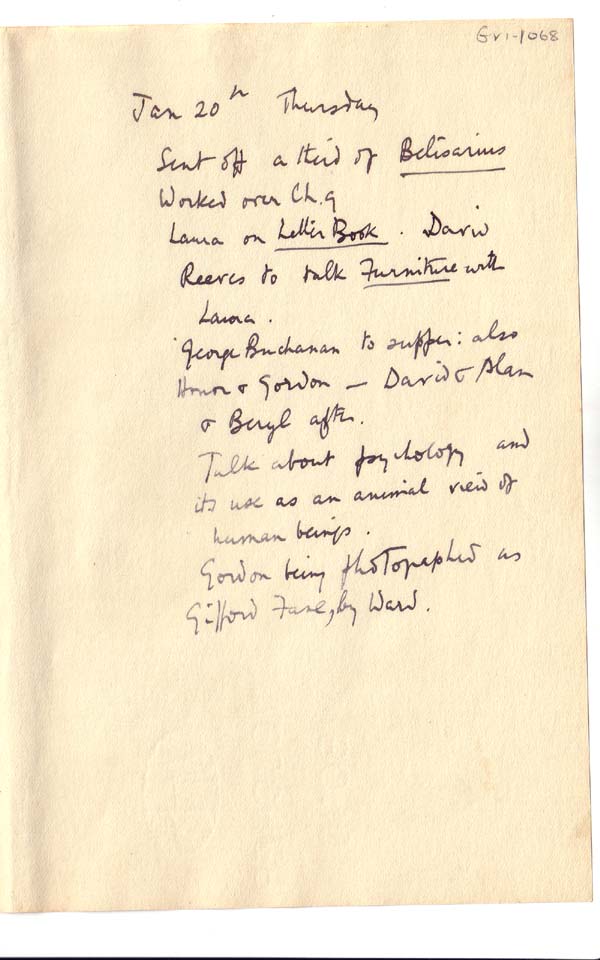 Gr1-1068
Jan 20th Thursday
Sent off a third of Belisarius
Worked over Ch. 9
Laura on Letter Book. David
Reeves to talk Furniture with
Laura.
George Buchanan to supper: also
Honor & Gordon — David & Alan
& Beryl after.
Talk about psychology and
its use as an animal view of
human beings.
Gordon being photographed as
Gifford Fane, by Ward.